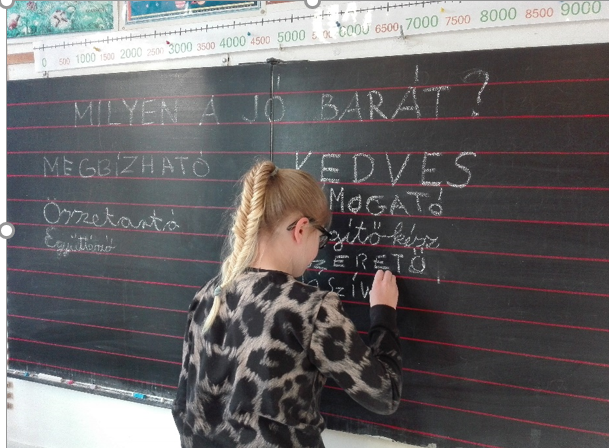 0 500 1000 1500 2000 2500 3000 3500 4000 4500 5000 6000 6500 7000 7500 8000 8500 9000
MILYEN A JÓ BARÁT?
MEGBÍZHATÓ
Összetartó
KEDVES
MOGATÓ
gítőkész
ERETŐ